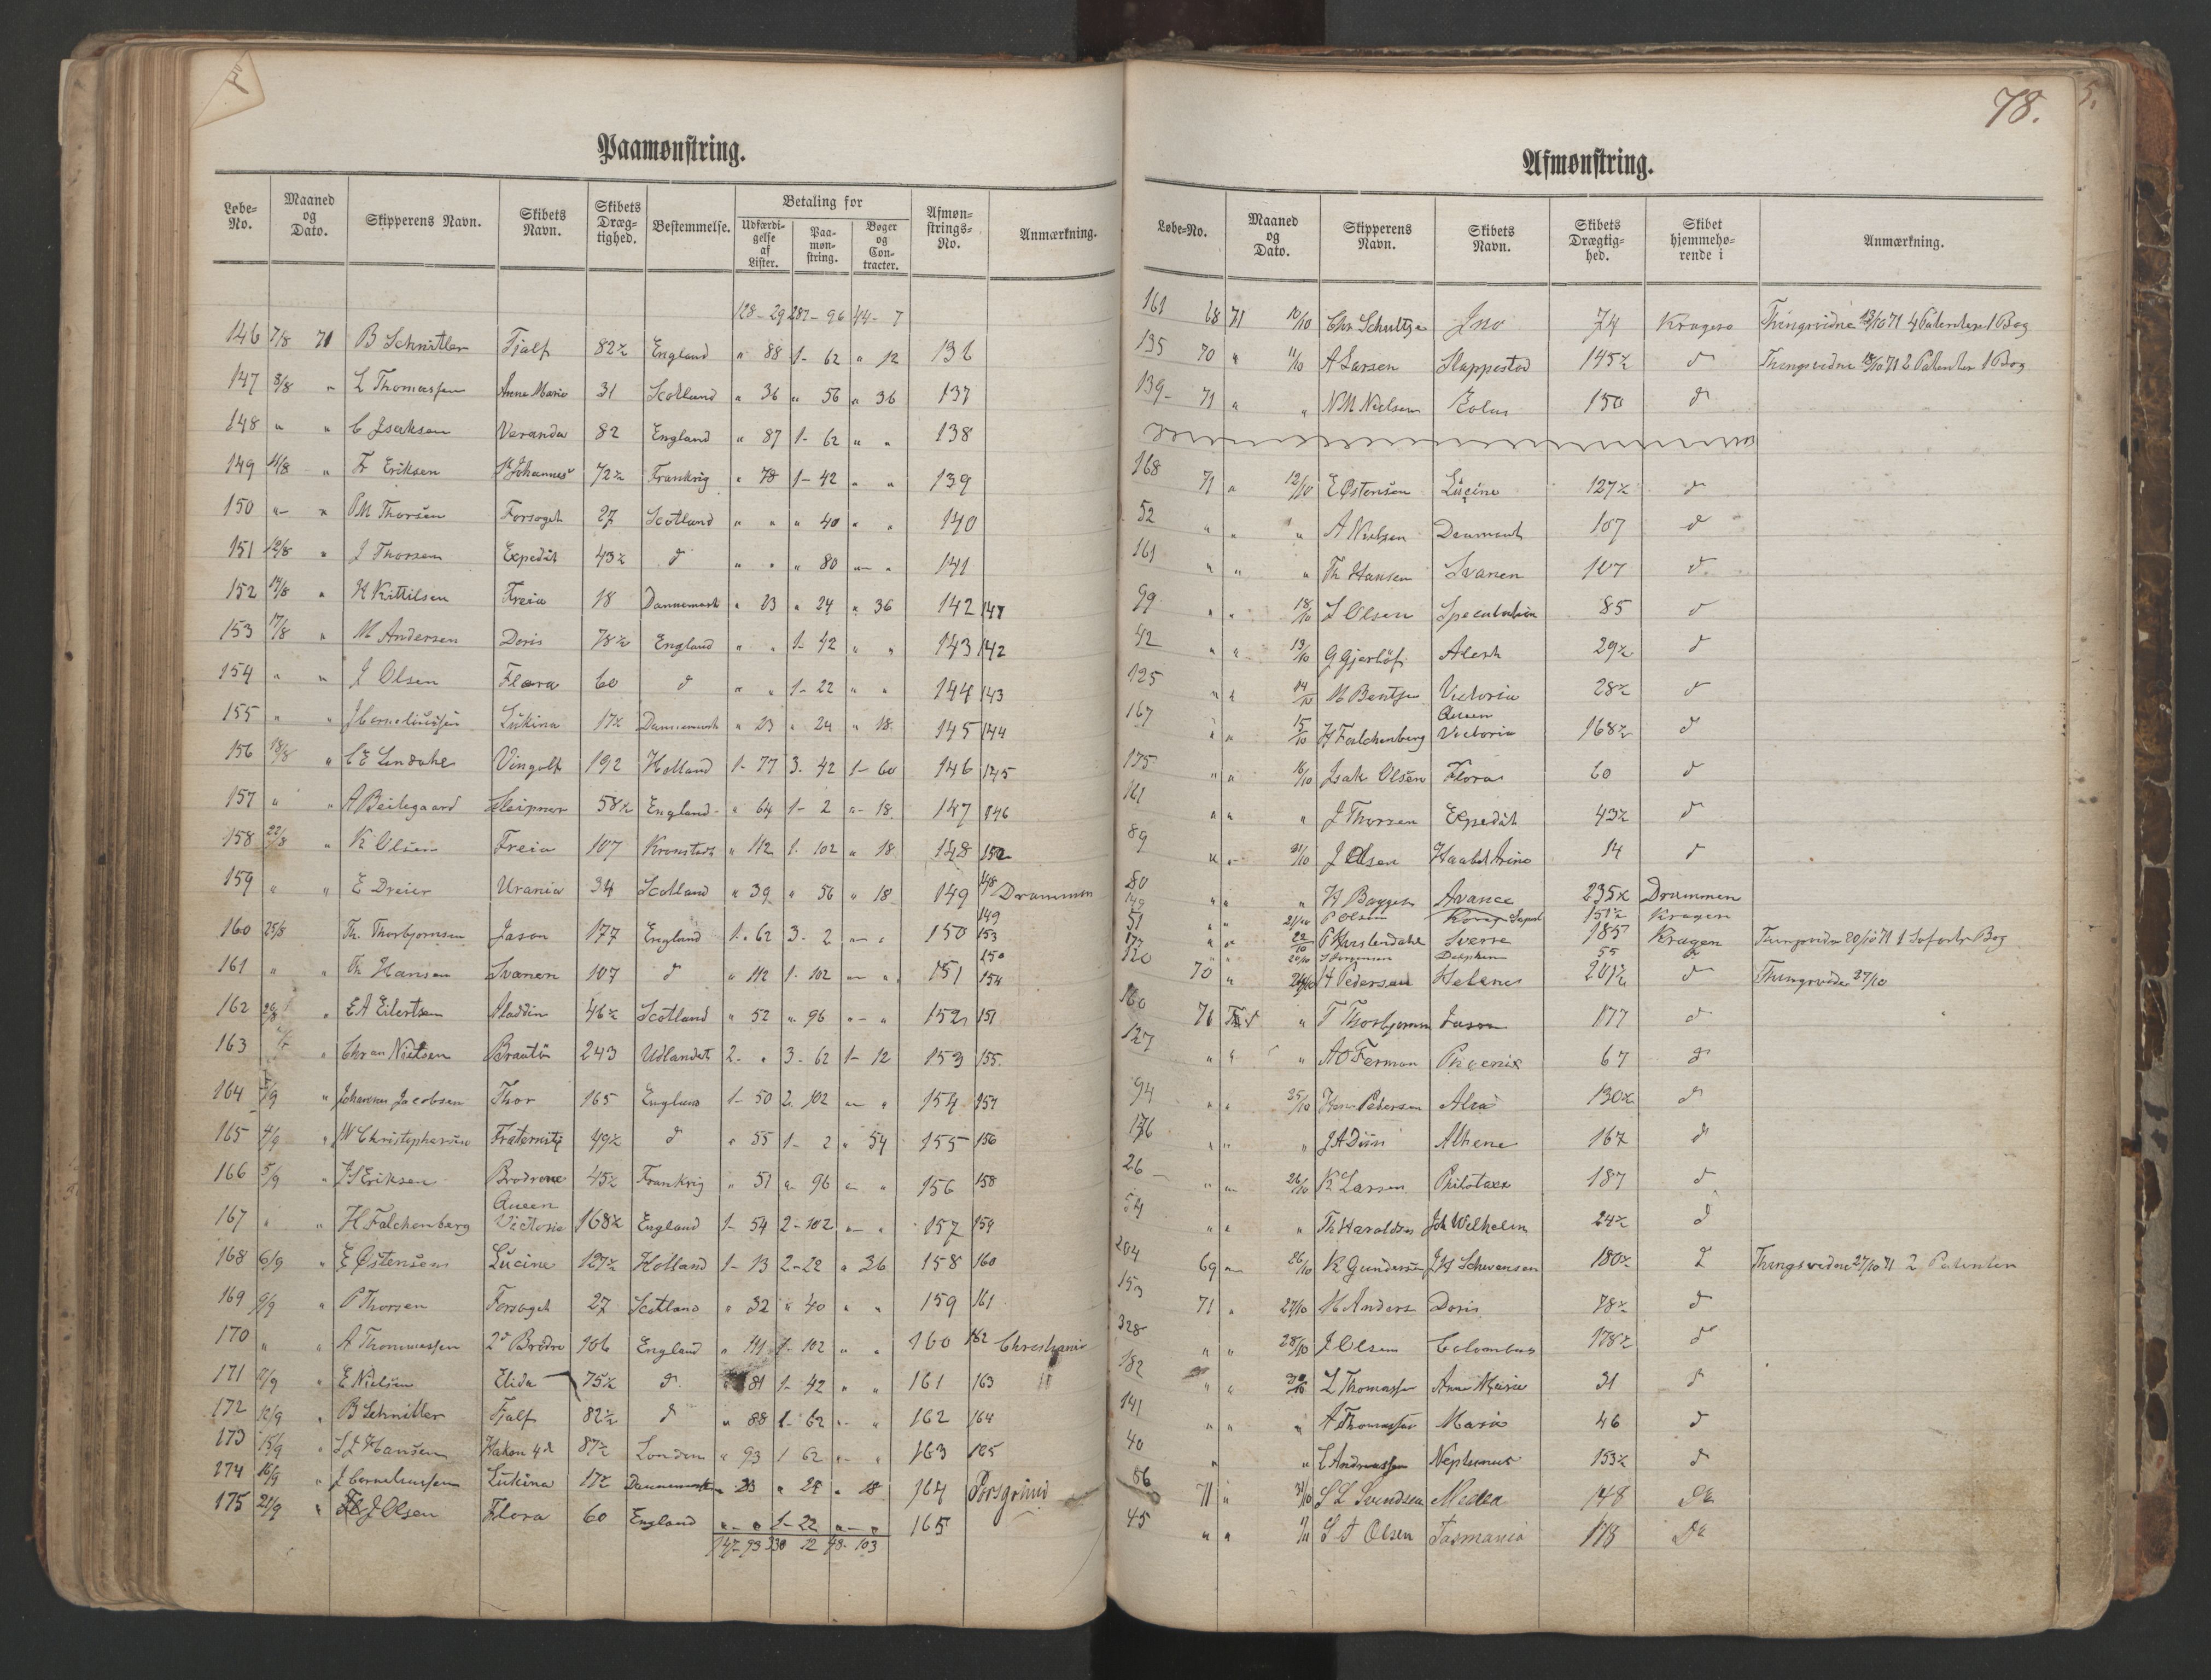 78.
Paamønstring.
Løbe-No. Maaned og Dato. Skipperens Navn. Skibets Navn. Skibets Dræg-tighed. Bestemmelse. Betaling for Udfærdi-gelse af Lister. Paa-møn-string. Bøger og Con-tracter. Afmøn-strings-No. Anmærkning.
128-29 287-96 44-7
146 7/8 71 B Schnitler Fjalf 82½ England " 88 1-62 " 12 136
147 8/8 " L Thomassen Anna Marie 31 Scotland " 36 " 56 " 36 137
148 " " C Isaksen Veranda 82 England " 87 1-62 " " 138
149 11/8 " F Eriksen St Johannes 72½ Frankrig " 78 1-42 " " 139
150 " " PM Thorsen Forsøget 27 Scotland " " " 40 " " 140
151 12/8 " J Thorsen Expedit 43½ d " " " 80 " " 141
152 14/8 " K Kittilsen Freia 18 Dannemark " 23 " 24 " 36 142 147
153 17/8 " M Andersen Doris 78½ England " " 1-42 " " 143 142
154 " " J Olsen Flora 60 d " " 1-22 " " 144 143
155 " " J Corneliussen Lukina 17½ Dannemark " 23 " 24 " 18 145 144
156 18/8 " C E Lindahl Vingolf 192 Holland 1-77 3-42 1-60 146 145
157 " " A Beilegaard Sleipner 58½ England " 64 1-2 " 18 147 146
158 22/8 " K Olsen Freia 107 Kronstadt " 112 1-102 " 18 148 152
159 " " E Dreier Urania 34 Scotland " 39 " 56 " 18 149 148 Drammen
160 25/8 Th. Thorbjørnsen Jason 177 England 1-62 3-2 " " 150 149 153
161 " " Th Hansen Svanen 107 d " 112 1-102 " " 151 150 154
162 26/8 " E A Eilertsen Aladdin 46½ Scotland " 52 " 96 " " 152 151
163 " Chr an Nielsen 243 Udlandet 2- " 3-62 1-12 153 155
164 /9 " Johannes Jacobsen Thor 165 England 1-50 2-102 " " 154 157
165 4/9 " W Christophersen Fraternity 49½ d " 55 1-2 " 54 155 156
166 5/9 " J Eriksen Brødrene 45½ Frankrig " 51 " 96 " " 156 158
167 " " H Falchenberg Queen Victoria 168½ England 1-54 2-102 " " 157 159
168 6/9 " E Østensen Lucine 127½ Holland 1-13 2-22 " 36 158 160
169 9/9 " P Thorsen Forsøget 27 Scotland " 32 " 40 " " 159 161
170 " " A Thommassen 2de Brødre 106 England " 111 1-102 " " 160 162 Christiania
171 /9 " E Nielsen Elida 75½ d " 81 1-42 " " 161 163
172 12/9 " B Schnitler Fjalf 82½ d " 88 1-62 " " 162 164
173 15/9 " S J Hansen Hakon 4de 87½ London " 93 1 62 " " 163 165
174 16/9 " J Corneliussen Lukina 17½ Dannemark " 23 " 24 " 18 164 Porsgrund
175 21/9 " J Olsen Flora 60 England " " 1-22 " " 165
147-93 330 12 48-103
Afmønstring.
Løbe-No. Maaned og Dato. Skipperens Navn. Skibets Navn. Skibets Drægtig-hed. Skibet hjemmehø-rende i Anmærkning.
161 68 71 10/10 Chr Schultze Juno 74 Kragerø Thingsvidne 13/10 71 4 Patenter 1 Bog
135 70 " 11/10 A Larsen Stappestad 145½ d Thingsvidne 18/10 71 2 Patenter 1 Bog
139 71 " " N M Nielsen Eolus 150 d
168 71 " 12/10 E Østensen Lucine 127½ d
52 " " " A Nielsen 107 d
161 " " " Th Hansen Svanen 107 d
99 " " 18/10 L Olsen Speculation 85 d
42 " " 13/10 G Gjerløf Alert 29½ d
125 " " 14/10 M Bentzen Victoria 28½ d
167 " " 15/10 H Falchenberg Queen Victoria 168½ d
175 " " 16/10 Isak Olsen Flora 60 d
161 " " " J Thorsen Expedit 43½ d
89 " " 21/10 J Olsen Haabet 14 d
80 " " " H Bagge Avance 235½ Drammen
149 " " 21/10 P Olsen 151½ Kragerø
51 " " 22/10 P Sverre 185 Kragerø Thingsvidne 20/10 71 1 Bog
177 " " 20/10 Delphin 55 d
120 70 " 24/10 H Pedersen Helene 201½ d Thingsvidne 27/10
160 71 " T Thorbjørnsen Jason 177 d
127 " " " A O Ferman Phoenix 67 d
94 " " 25/10 Hans Pedersen Alva 130½ d
176 " " " J A Dün Athene 167 d
26 " " 26/10 K Larsen Philotaxe 187 d
54 " " " Th Haraldsen Joh Wilhelm 24½ d
204 69 " 26/10 K Gundersen J H Schwensen 180½ d Thingsvidne 27/10 71 2 Patenter
153 71 " 27/10 M Anders Doris 78½ d
328 " " 28/10 J Olsen Colombus 178½ d
182 " " 30/10 L Thomassen Anna Marie 31 d
141 " " " A Thomassen Maria 46 d
40 " " L Andreassen Neptunus 153½ d
86 71 " 31/10 S L Svendsen Medea 148 Do
45 " " S A Olsen Tasmania 178 Do